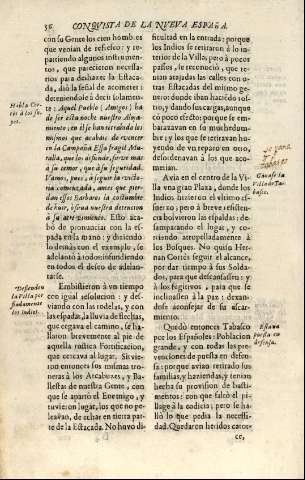 56 CONQVISTA DE LA NVEVA ESPAÑA.
con su Gente los cien hombres
que venian de refresco: y re-
partiendo algunos instrumen-
tos, que parecieron necessa-
rios para deshazer la Estaca-
da, diò la señal de acometer:
deteniendose à decir solamen-
te: Aquel Pueblo (Amigos) ha
de ser esta noche nuestro Aloja-
miento; en èl se han retraìdo los
mismos que acabais de vencer
en la Campaña. Essa fragil Mu-
ralla, que los defiende, sirve mas
à su temor, que à su seguridad.
Vamos, pues, à seguir la victo-
ria comenzada, antes que pier-
dan estos Barbaros la costumbre
de huir, ò sirva nuestra detencion
à su atrevimiento. Esto acabò
de pronunciar con la es-
pada en la mano: y diziendo
lo demàs con el exemplo, se
adelantò à todos infundiendo
en todos el deseo de adelan-
tarse.
Embistieron à un tiempo
con igual resolucion: y des-
viando con las rodelas, y con
las espadas, la lluvia de flechas,
que cegava el camino, se ha-
llaron brevemente al pie de
aquella rustica Fortificacion,
que cercava al lugar. Sirvie-
ron entonces sus mismas tro-
neras à los Arcabuzes, y Ba-
llestas de nuestra Gente, con
que se apartò el Enemigo, y
tuvieron lugar, los que no pe-
leavan, de echar en tierra par-
te de la Estacada. No huvo di-
Habla Cor-
tès à los su-
yos.
Defienden
la Villa por-
fiadamente
los Indios.
ficultad en la entrada: porque
los Indios se retiraron à lo in-
terior de la Villa; pero à pocos
passos, se reconociò, que te-
nian atajadas las calles con o-
tras Estacadas del mismo ge-
nero: donde iban haziendo ros-
tro, y dando sus cargas, aunque
cõ poco efecto; porque se em-
barazavan en su muchedum-
bre; y los que se retiravan hu-
yendo de un reparo en otro,
desordenavan à los que aco-
metian.
Avia en el centro de la Vi-
lla una gran Plaza, donde los
Indios hizieron el ultimo es-
fuerzo; pero à breve resisten-
cia bolvieron las espaldas: de-
samparando el lugar, y cor-
riendo atropelladamente à
los Bosques. No quiso Her-
nan Cortès seguir el alcance,
por dar tiempo à sus Solda-
dos, para que descansassen: y
à los fugitivos, para que se
inclinassen à la paz: dexan-
dose aconsejar de su escar-
miento.
Quedò entonces Tabasco
por los Españoles: Poblacion
grande, y con todas las pre-
venciones de puesta en defen-
sa: porque avian retirado sus
familias, y haziendas, y tenian
hecha su provision de basti-
mentos: con que faltò el pi-
llage à la codicia; pero se ha-
llò lo que pedia la necessi-
dad. Quedaron heridos cator-
Ganase la
Villa de Ta-
basco.
Estava
puesta en
defensa.
ce,